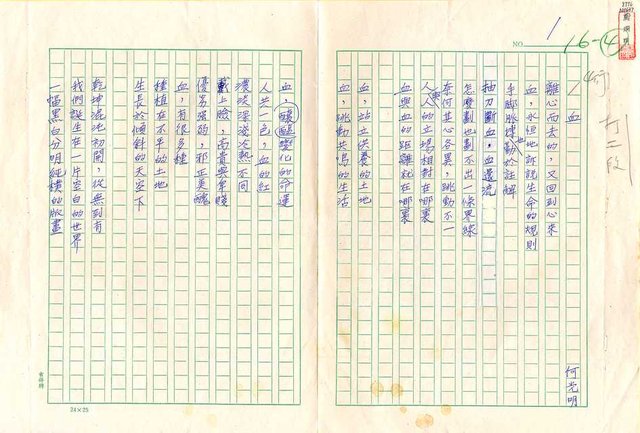 NO. 1
16-④
血
何光明
離心而去的，又回到心來
血，永恒地訴說生命的規則
手腳脈搏動於註解
抽刀斷血，血還流
怎麼劃也劃不出一條界線
奈何其心各異，跳動不一
人人的立場相對在哪裏
血與血的距離就在哪裏
血，站立供養的土地
血，跳動共鳴的生活
血，醞釀變化的命運
人共一色，血的紅
濃淡深淺冷熱不同
戴上臉，高貴與卑賤
優劣強弱，邪正美醜
血，有很多種
種植在不平的土地
生長於傾斜的天空下
乾坤混沌初開，從無到有
我們誕生在一片空白的世界
一幅黑白分明純樸的版畫
24×25